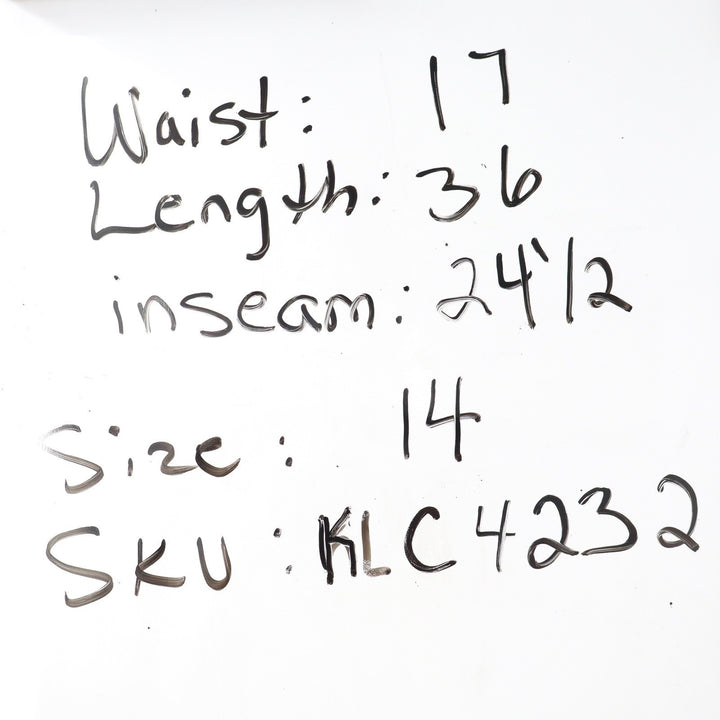 Waist: 17
Length: 36
inseam: 24 1/2
Size: 14
SKU: KLC4232